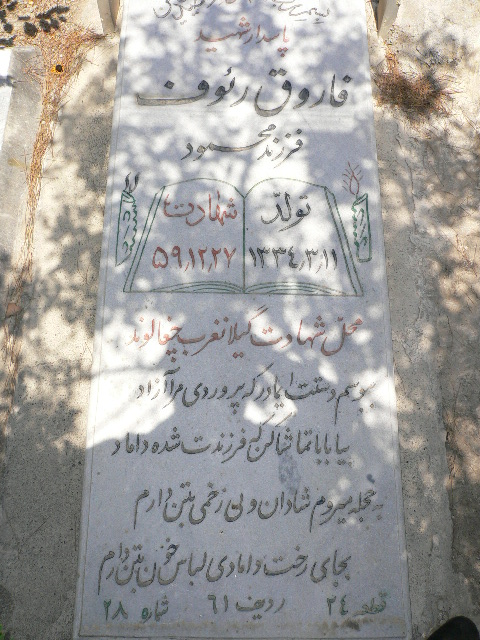 پاسدار شهید
فاروق رئوف
فرزند محمود
تولد شهادت
۱۳۳۴٫۳٫۱۱ ۵۹٫۱۲٫۲۷
شهید شهید
محل شهادت گیلانغرب چغالوند
ببوسم دستت ایمادر که پروردی مرا آزاد
بیا بابا تماشا کن که فرزندت شده داماد
به حجله میروم شادان ولی زخمی بتن دارم
بجای رخت دامادی لباس خون بتن دارم
قطعه ۲۴ ردیف ۶۱ شماره ۲۸